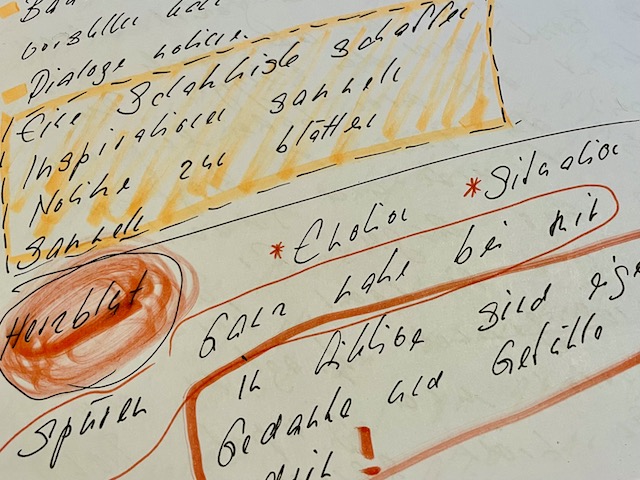 vorstellen
Dialoge notieren
Eine Schatzkiste schaffen
Inspirationen sammeln
Notizen zu blättern
Sammeln
* Emotion * Situation
Herzblut
Ganz nahe bei mir
Spüren
In sind
Gedanken und Gefühle
!